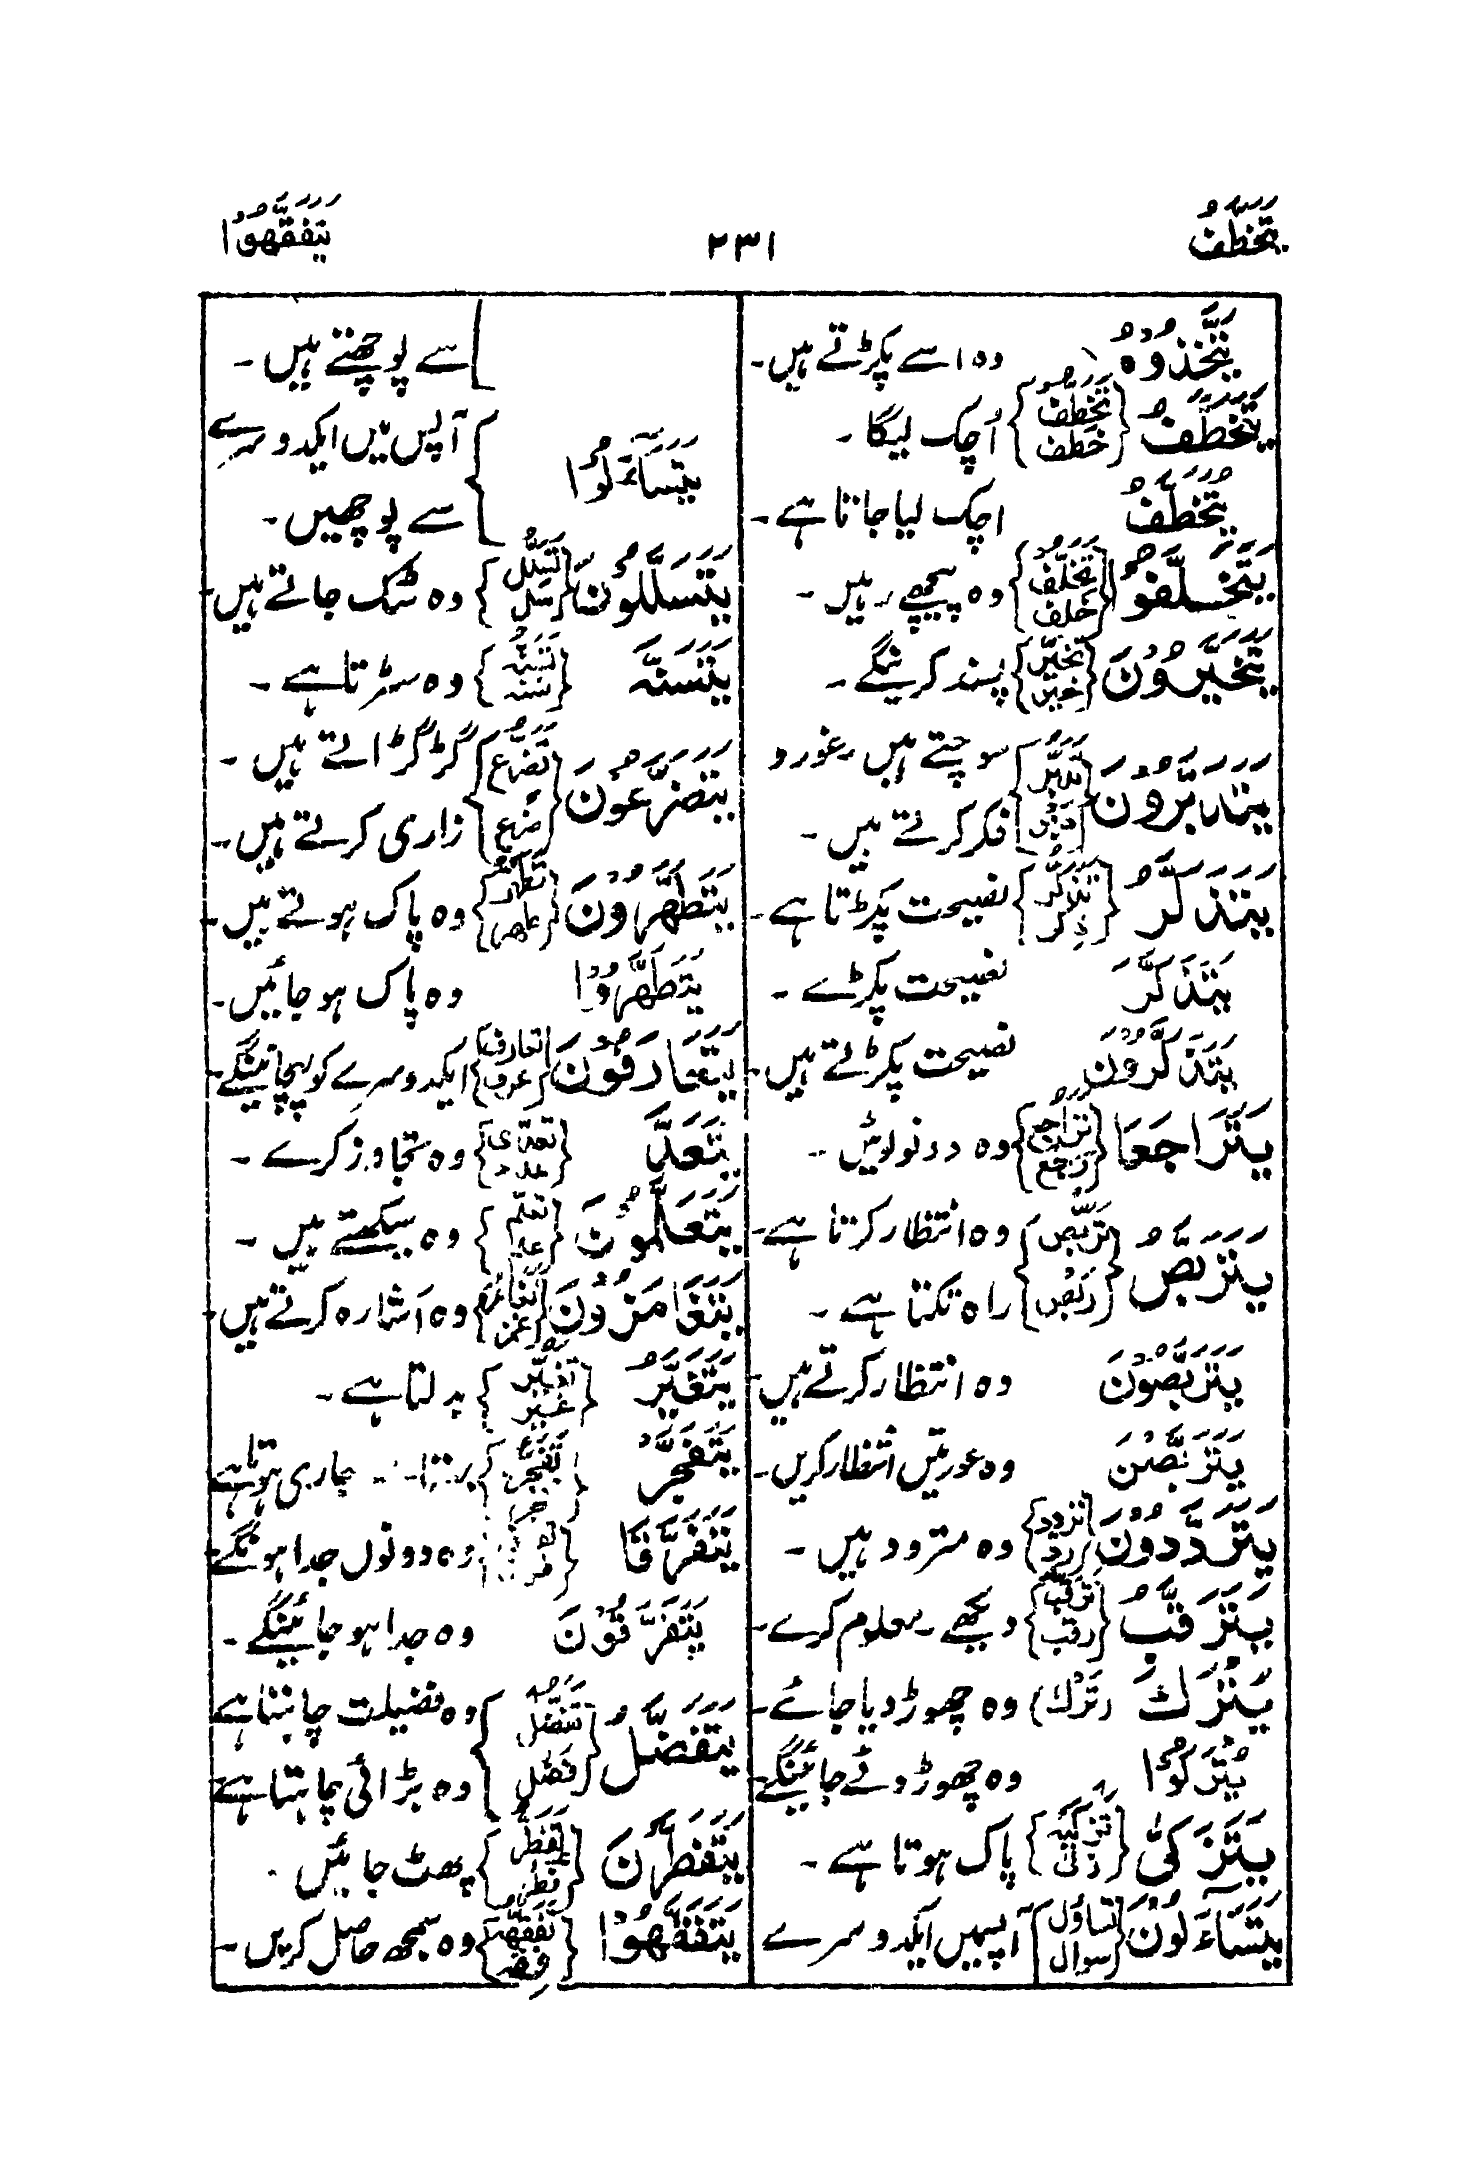 یَتَخَطَّفُ ۲۳۱ یَتَفَقَّهُوْا
یَتَّخِذُوْہُ وہ اسے پکڑتے ہیں۔
یَتَخَطَّفُ {تَخَطُّف خطف} اُچک لیگا۔
یُتَخَطَّفُ اچک لیا جاتا ہے۔
یَتَخَلَّفُوْا {تَخَلُّف خلف} وہ پیچھے رہیں۔
یَتَخَیَّرُوْنَ {تخیّر خیر} پسند کرینگے۔
یَتَدَبَّرُوْنَ {تدبّر دبر} سوچتے ہیں۔ غور و
فکر کرتے ہیں۔
یَتَذَکَّرُ {تَذَکُّر ذکر} نصیحت پکڑتا ہے۔
یَتَذَکَّرَ نصیحت پکڑے۔
یَتَذَکَّرُوْنَ نصیحت پکڑتے ہیں۔
یَتَرَاجَعَا {تراجع رجع} وہ دونو لوٹیں۔
یَتَرَبَّصُ {تربّص ربص} وہ انتظار کرتا ہے۔
راہ تکتا ہے۔
یَتَرَبَّصُوْنَ وہ انتظار کرتے ہیں۔
یَتَرَبَّصْنَ وہ عورتیں انتظار کریں۔
یَتَرَدَّدُوْنَ {تردد ردد} وہ متردد ہیں۔
یَتَرَقَّبُ {ترقب رقب} دیکھے۔ معلوم کرے۔
یُتْرَکَ (تَرْک) وہ چھوڑ دیا جائے۔
یُتْرَکُوْا وہ چھوڑ دئے جائینگے۔
یَتَزَکّٰی {تزکیہ زکی} پاک ہوتا ہے۔
یَتَسَآءَلُوْنَ {تساؤل سوال} آپسمیں ایکدوسرے
سے پوچھتے ہیں۔
یَتَسَآءَلُوْا {آپس میں ایکدوسرے
سے پوچھیں۔
یَتَسَلَّلُوْنَ {تسلّل سلل} وہ سٹک جاتے ہیں۔
یَتَسَنَّہْ {تَسَنُّہ سنہ} وہ سڑتا ہے۔
یَتَضَرَّعُوْنَ {تَضَرُّع ضرع} گڑگڑاتے ہیں۔
زاری کرتے ہیں۔
یَتَطَھَّرُوْنَ {تطھّر طھر} وہ پاک ہوتے ہیں۔
یَتَطَھَّرُوْا وہ پاک ہو جائیں۔
یَتَعَارَفُوْنَ {تعارف عرف} ایکدوسرے کو پہچانینگے۔
یَتَعَدَّ {تعدّی عدد} وہ تجاوز کرے۔
یَتَعَلَّمُوْنَ {تعلّم علم} وہ سیکھتے ہیں۔
یَتَغَامَزُوْنَ {تغامز غمز} وہ اشارہ کرتے ہیں۔
یَتَغَیَّرُ {تغیّر غیر} بدلتا ہے۔
یَتَفَجَّرُ {تَفَجُّر جاری ہوتا ہے
یَتَفَرَّقَا وہ دونوں جدا ہونگے
یَتَفَرَّقُوْنَ وہ جدا ہو جائینگے۔
یَتَفَضَّلُ {تَفَضُّل فضل} وہ فضیلت چاہتا ہے
وہ بڑائی چاہتا ہے
یَتَفَطَّرْنَ {تَفَطُّر فطر} پھٹ جائیں۔
یَتَفَقَّهُوْا {تَفَقُّہ فقہ} وہ سمجھ حاصل کریں۔